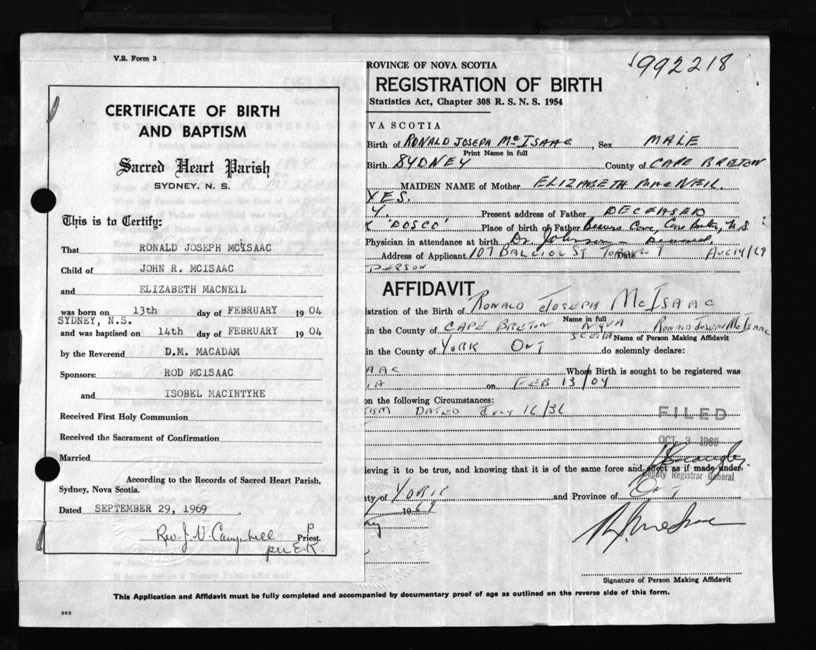 V.S. Form 3
CERTIFICATE OF BIRTH
AND BAPTISM
Sacred Heart Parish
SYDNEY, N. S.
This is to Certify:
That RONALD JOSEPH MCISAAC
Child of JOHN R. MCISAAC
and ELIZABETH MACNEIL
was born on 13th day of FEBRUARY 1904
SYDNEY, N.S.
and was baptised on 14th day of FEBRUARY 1904
by the Reverend D.M. MACADAM
Sponsors: ROD MCISAAC
and ISOBEL MACINTYRE
Received First Holy Communion
Received the Sacrament of Confirmation
Married
According to the Records of Sacred Heart Parish,
Sydney, Nova Scotia.
Dated SEPTEMBER 29, 1969
Rev. J. V. Campbell P
Priest.
per E.K.
ROVINCE OF NOVA SCOTIA
1992218
REGISTRATION OF BIRTH
Statistics Act, Chapter 308 R. S. N. S. 1954
VA SCOTIA
Birth of RONALD JOSEPH McISAAC, Sex MALE
Print Name in full
Birth SYDNEY County of CAPE BRETON
MAIDEN NAME of Mother ELIZABETH MACNEIL.
YES.
Y. Present address of Father DECEASED
K 'DOSCO' Place of birth of Father Beavers Cove, Cape Breton, N.S
Physician in attendance at birth Dr. Johnson - Deceased
Address of Applicant 107 BALLIOL ST TORONTO Date AUG 14/69
PERSON
AFFIDAVIT
istration of the Birth of RONALD JOSEPH McISAAC
Name in full
in the County of CAPE BRETON NOVA SCOTIA RONALD JOSEPH McISAAC
Name of Person Making Affidavit
in the County of YORK ONT do solemnly declare:
AAC Whose Birth is sought to be registered was
IA on FEB 13/04
on the following Circumstances:
ISM DATED July 16/31
FILED
OCT 3 1969
ieving it to be true, and knowing that it is of the same force and effect as if made under
Deputy Registrar General
ty of YORK and Province of Ont
1969
Signature of Person Making Affidavit
This Application and Affidavit must be fully completed and accompanied by documentary proof of age as outlined on the reverse side of this form.